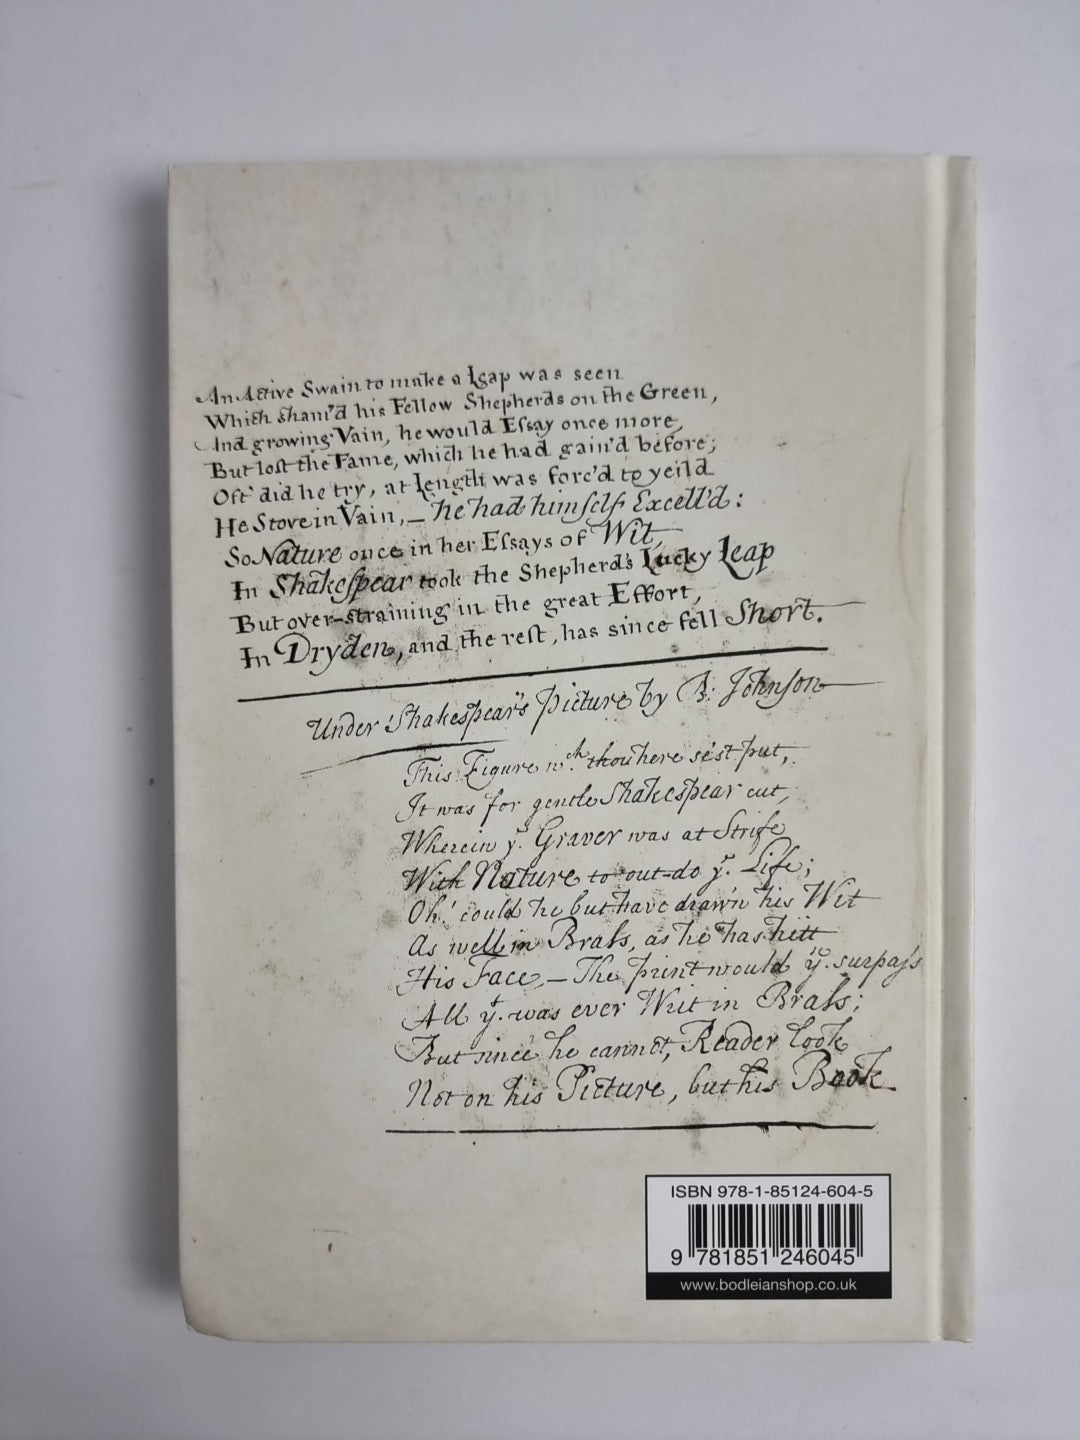 An Active Swain to make a Leap was seen
Which sham'd his Fellow Shepherds on the Green,
And growing Vain, he would Eſsay once more,
But loſt the Fame, which he had gain'd before;
Oft' did he try, at Length was forc'd to yeild
He Stove in Vain, — he had himſelf Excell'd:
So Nature once in her Eſsays of Wit,
In Shakeſpear took the Shepherd's Lucky Leap
But over-straining in the great Effort,
In Dryden, and the reſt, has since fell Short.
Under Shakeſpear's Picture by B: Johnſon
This Figure wch. thou here se'st put,
It was for gentle Shakeſpear cut,
Wherein ye. Graver was at Strife
With Nature to out-do ye. Life;
Oh! could he but have drawn his Wit
As well in Braſs, as he has hitt
His Face, — The print would yn. surpaſs
All yt. was ever Writ in Braſs;
But since he cannot, Reader look
Not on his Picture, but his Book
ISBN 978-1-85124-604-5
9 781851 246045
www.bodleianshop.co.uk